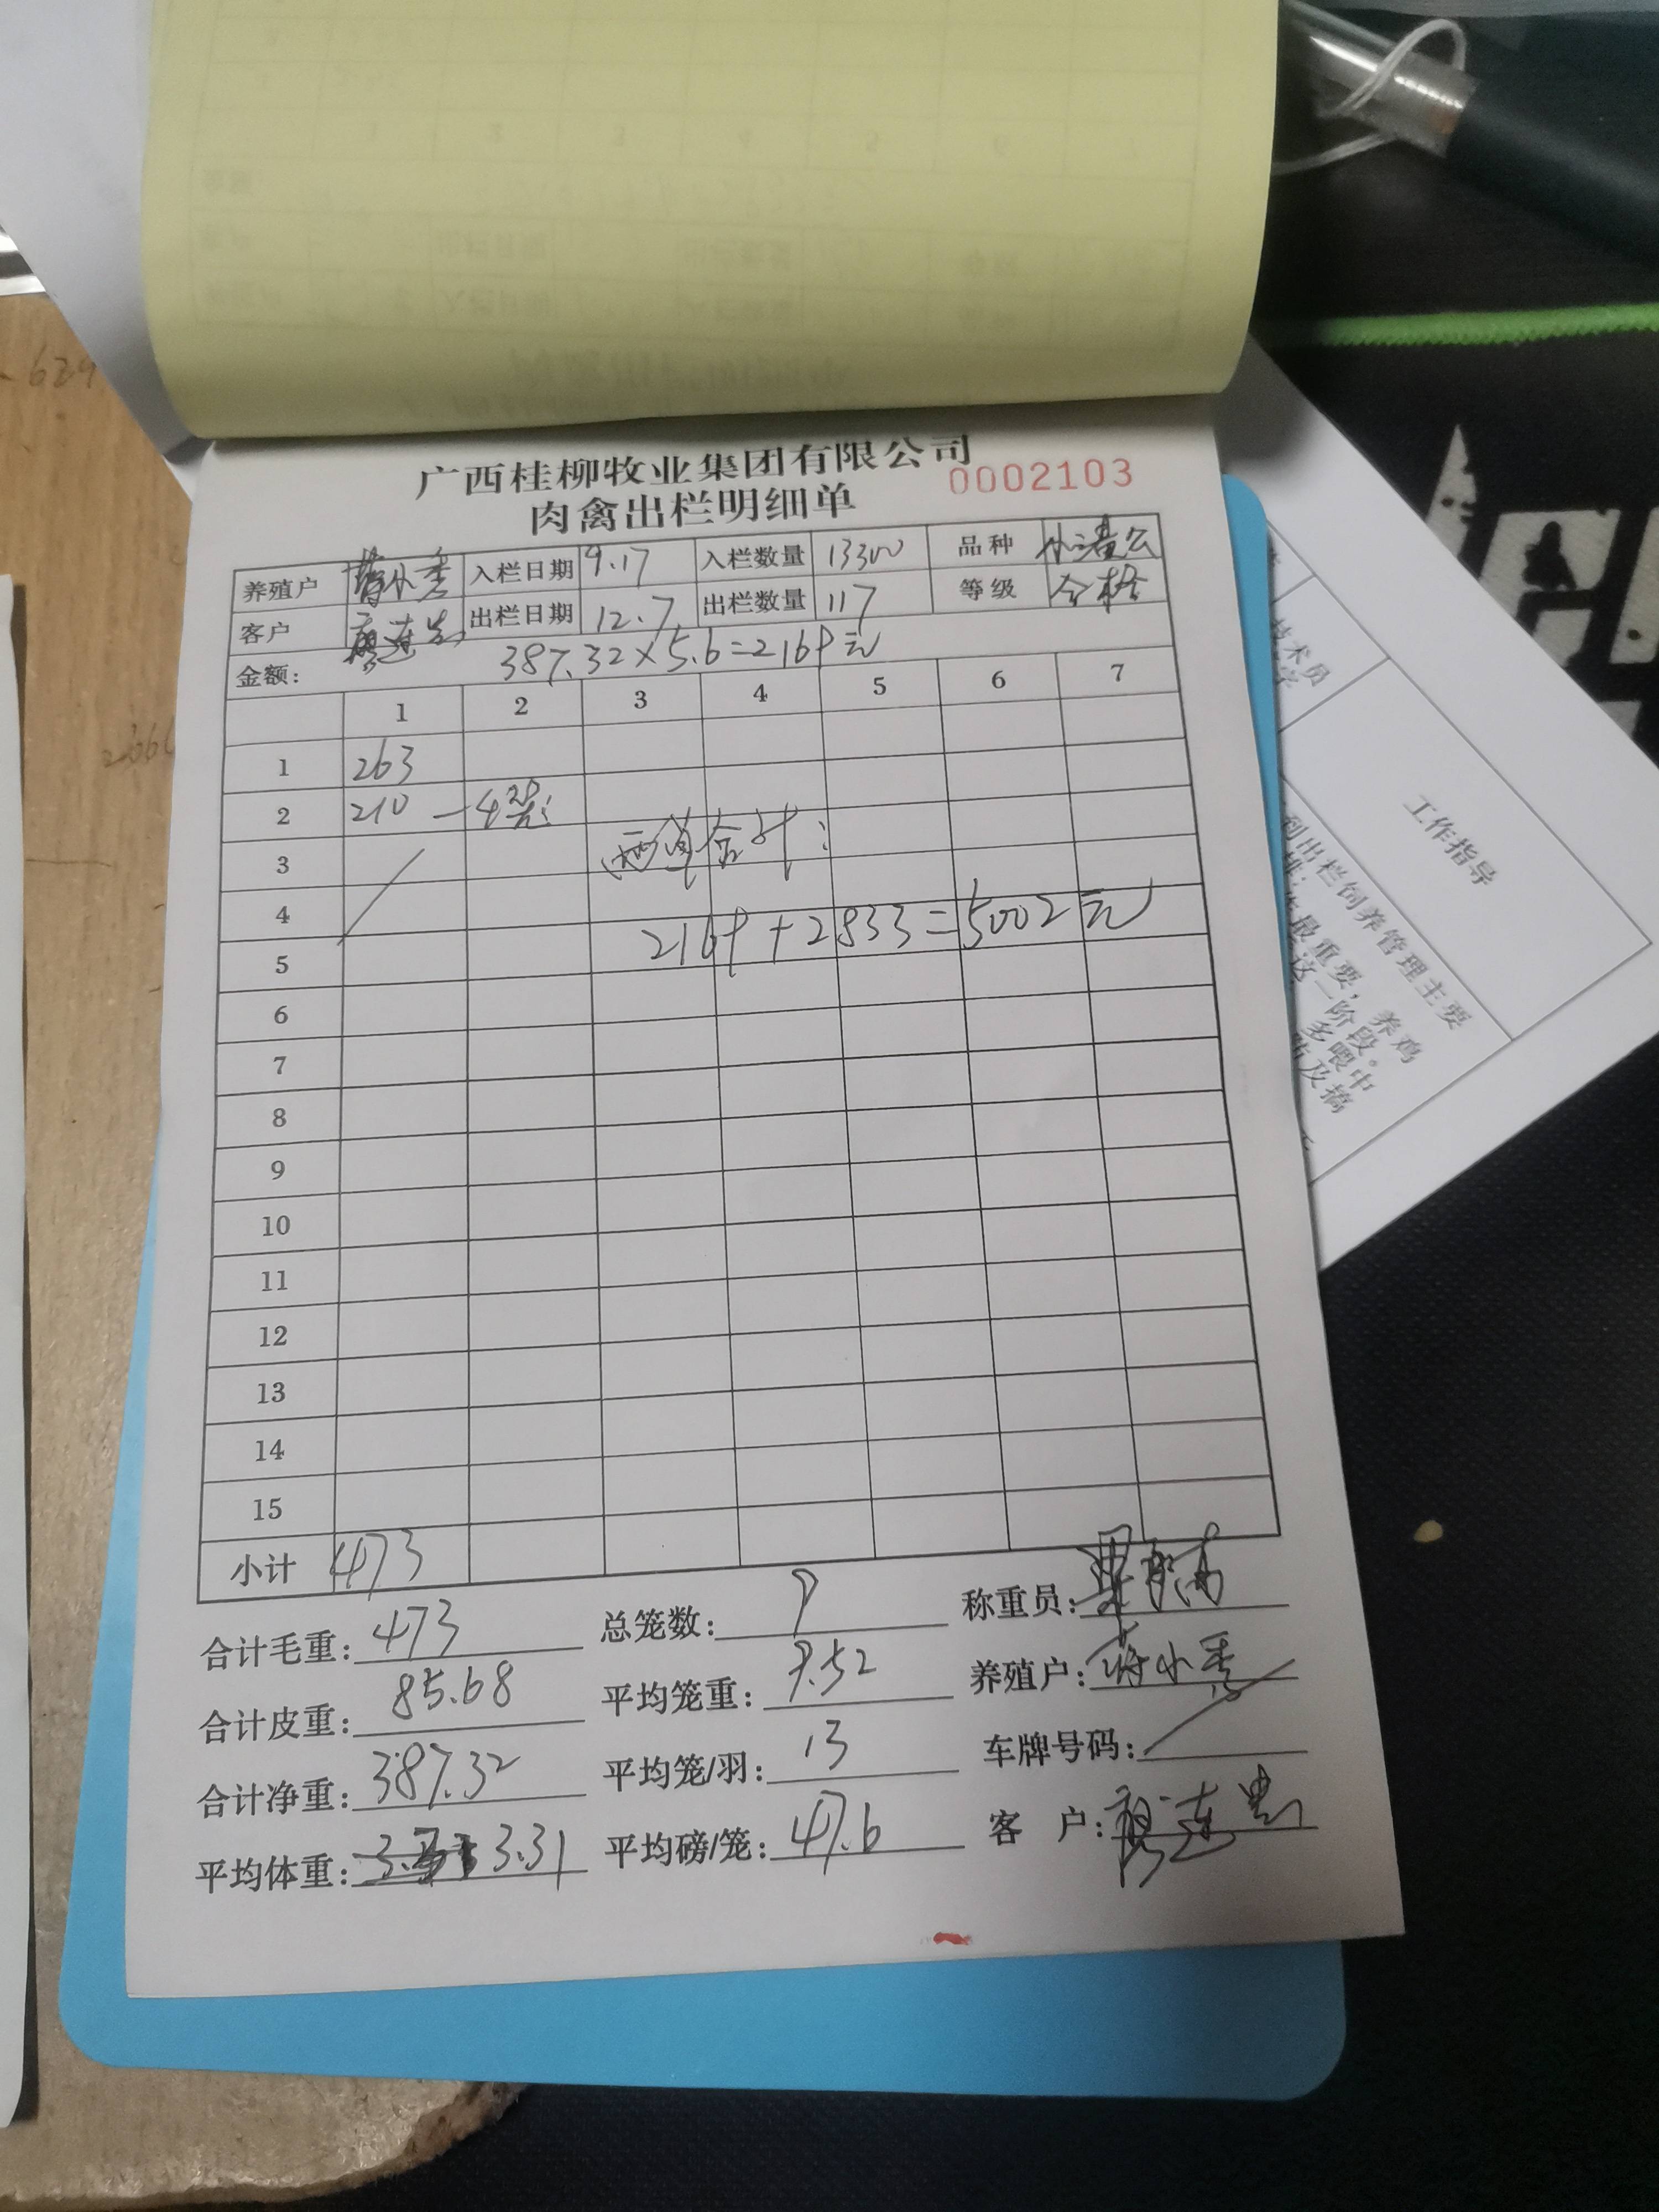 广西桂柳牧业集团有限公司
0002103
肉禽出栏明细单
养殖户 蒋小秀 入栏日期 9.17 入栏数量 13300 品种
客户 廖连忠 出栏日期 12.7 出栏数量 117 等级 合格
金额: 387.32×5.6=2169元
1 2 3 4 5 6 7
1 263
2 210 -4笼
3
4
两单合计:
2169+2833=5002元
5
6
7
8
9
10
11
12
13
14
15
小计 473
合计毛重: 473 总笼数: 9 称重员:
合计皮重: 85.68 平均笼重: 9.52 养殖户: 蒋小秀
合计净重: 387.32 平均笼/羽: 13 车牌号码:
平均体重: 3.31 平均磅/笼: 47.6 客 户: 廖连忠
技术员
工作指导
到出栏饲养管理主要
最重要,养鸡
这二阶段。
多喂中
防及搞